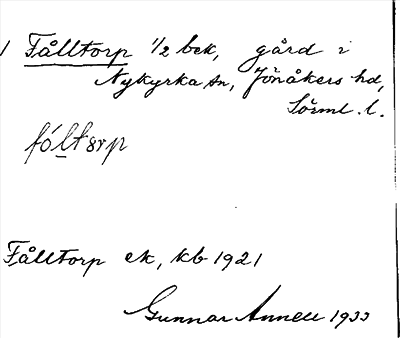 Fålltorp 1/2 bek, gård i
Nykyrka sn, Jönåkers hd,
Sörml. l.
fó̀ltsrp
Fålltorp ek, kb 1921
Gunnar Annell 1933